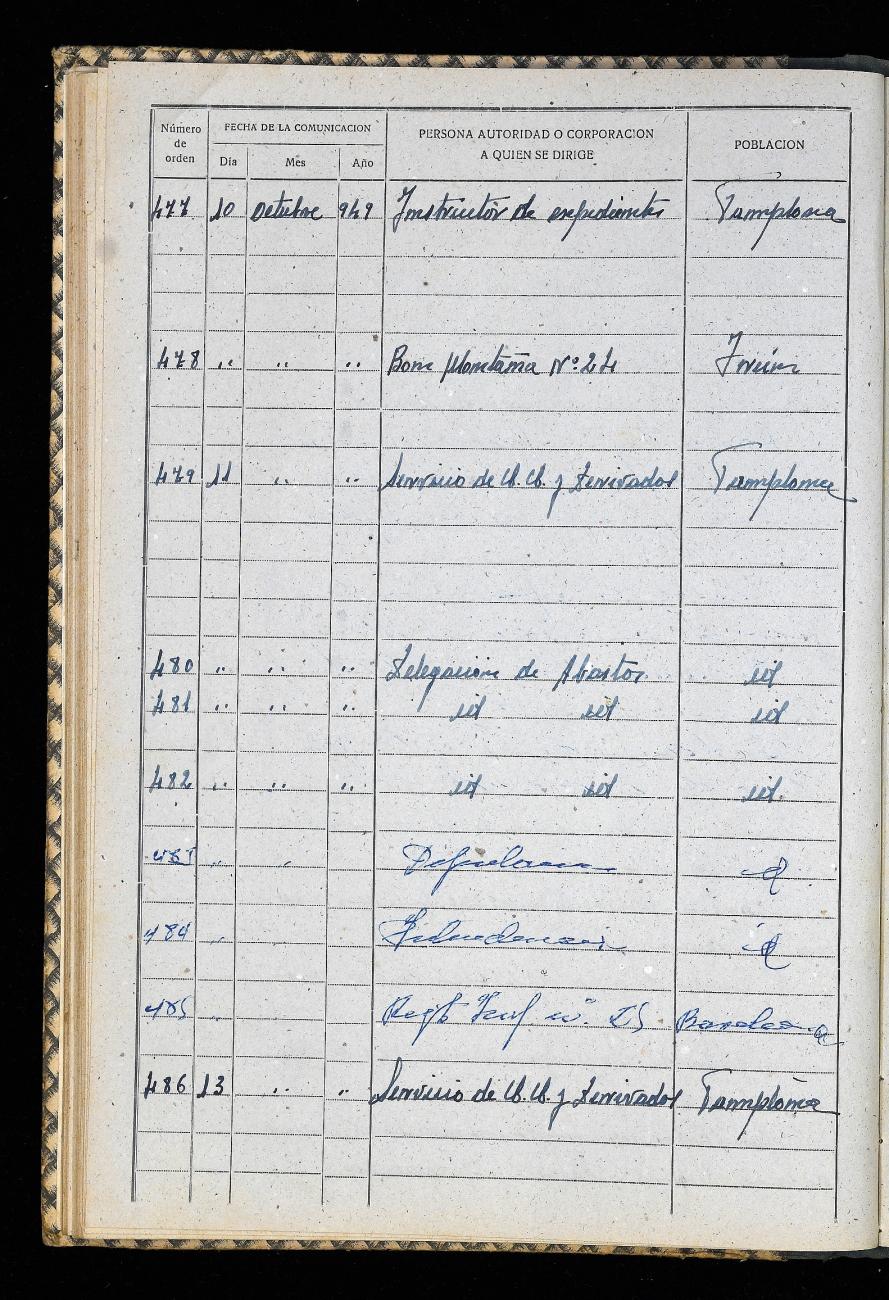 Número de orden FECHA DE LA COMUNICACION PERSONA AUTORIDAD O CORPORACION A QUIEN SE DIRIGE POBLACION
Día Mes Año
477 10 Octubre 949 Instructor de expedientes Pamplona
478 " " " Bon Montaña Nº 24 Irún
479 11 " " Servicio de C.C. y Derivados Pamplona
480 " " " Delegación de Abastos id
481 " " " id id id
482 " " " id id id
483 " " id
484 " id
485 " Regto Inf nº 25 Barcelona
486 13 " " Servicio de C.C. y Derivados Pamplona